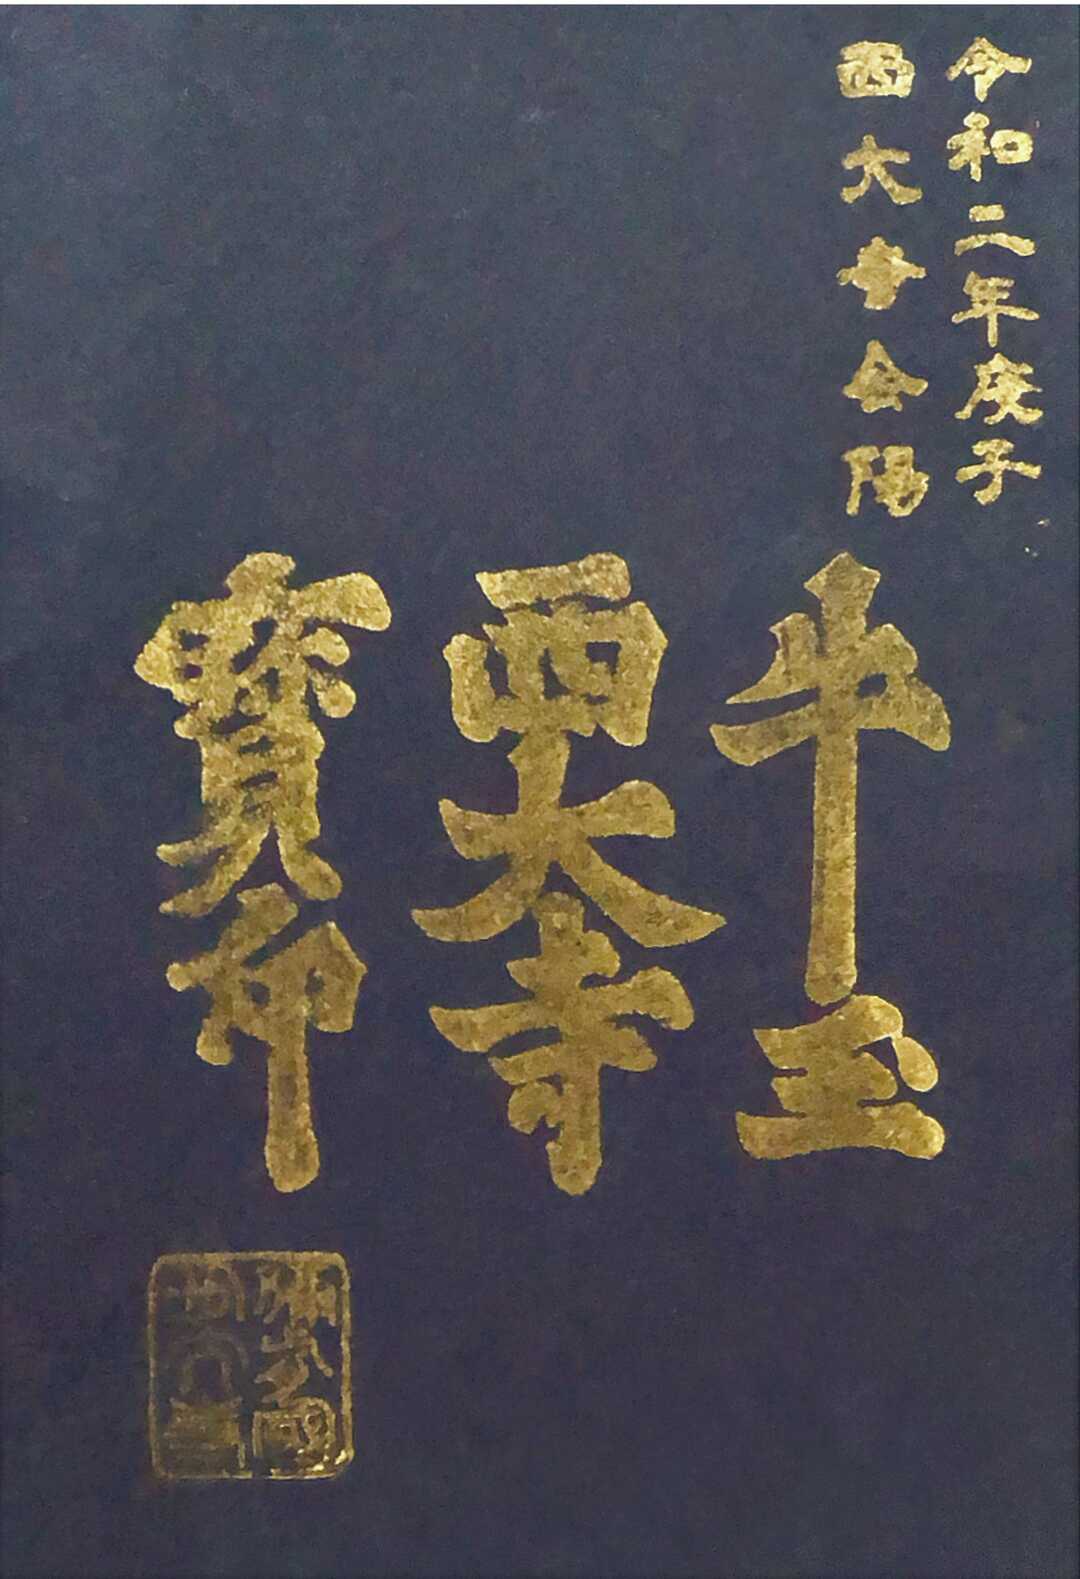 令和二年庚子
西大寺会陽
牛玉
西大寺
寳印